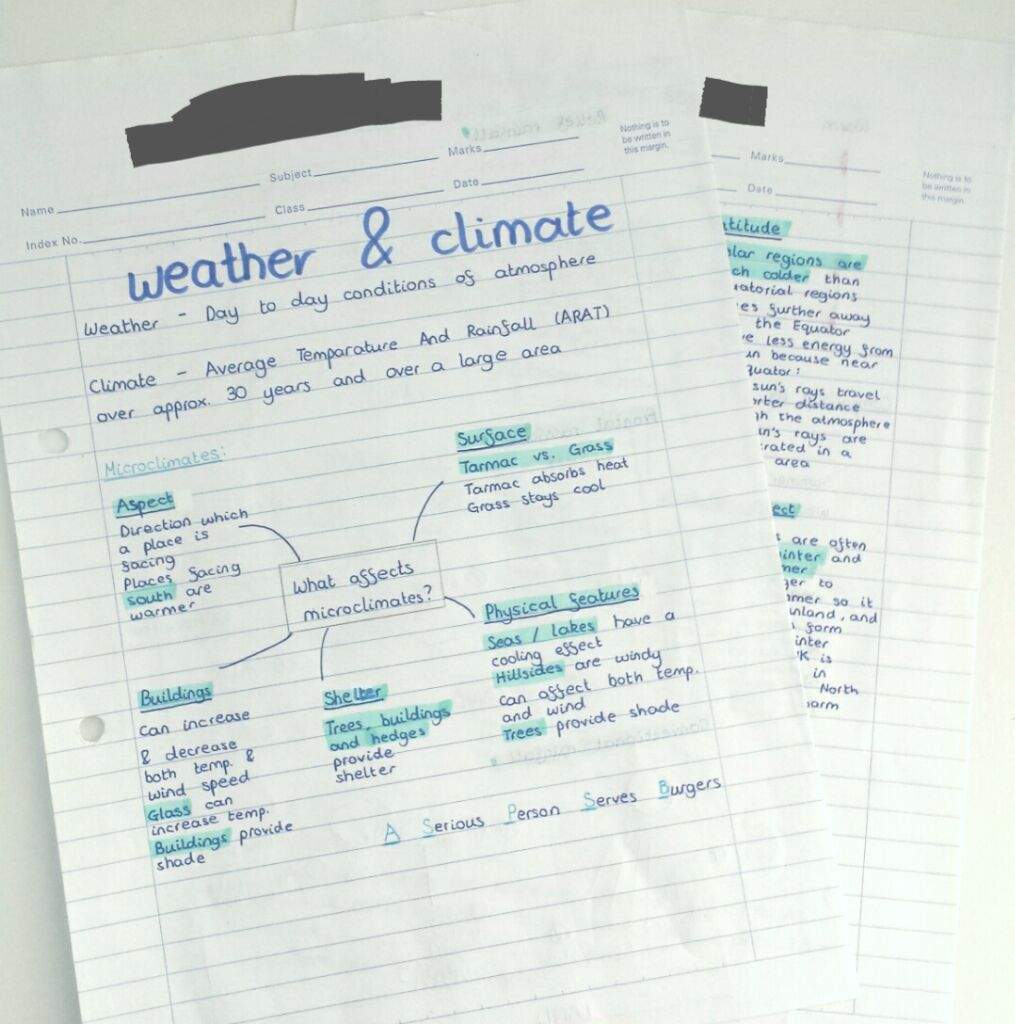 Name
Subject
Marks
Nothing is to
be written in
this margin.
Index No.
Class
Date
weather & climate
Weather - Day to day conditions of atmosphere
Climate - Average Temparature And Rainfall (ARAT)
over approx. 30 years and over a large area
Microclimates:
Aspect
Direction which
a place is
facing
Places facing
south are
warmer
Surface
Tarmac vs. Grass
Tarmac absorbs heat
Grass stays cool
What affects
microclimates?
Physical features
Seas / lakes have a
cooling effect
Hillsides are windy
can affect both temp.
and wind
Trees provide shade
Buildings
can increase
& decrease
both temp. &
wind speed
Glass can
increase temp.
Buildings provide
shade
Shelter
Trees, buildings
and hedges
provide
shelter
A Serious Person Serves Burgers
Marks
Nothing is to
be written in
this margin.
Date
titude
lar regions are
ch colder than
atorial regions
es further away
the Equator
e less energy from
un because near
quator:
sun's rays travel
rter distance
gh the atmosphere
un's rays are
rated in a
area
ect
are often
inter and
mer
ger to
mmer so it
nland, and
form
inter
K is
in
North
arm